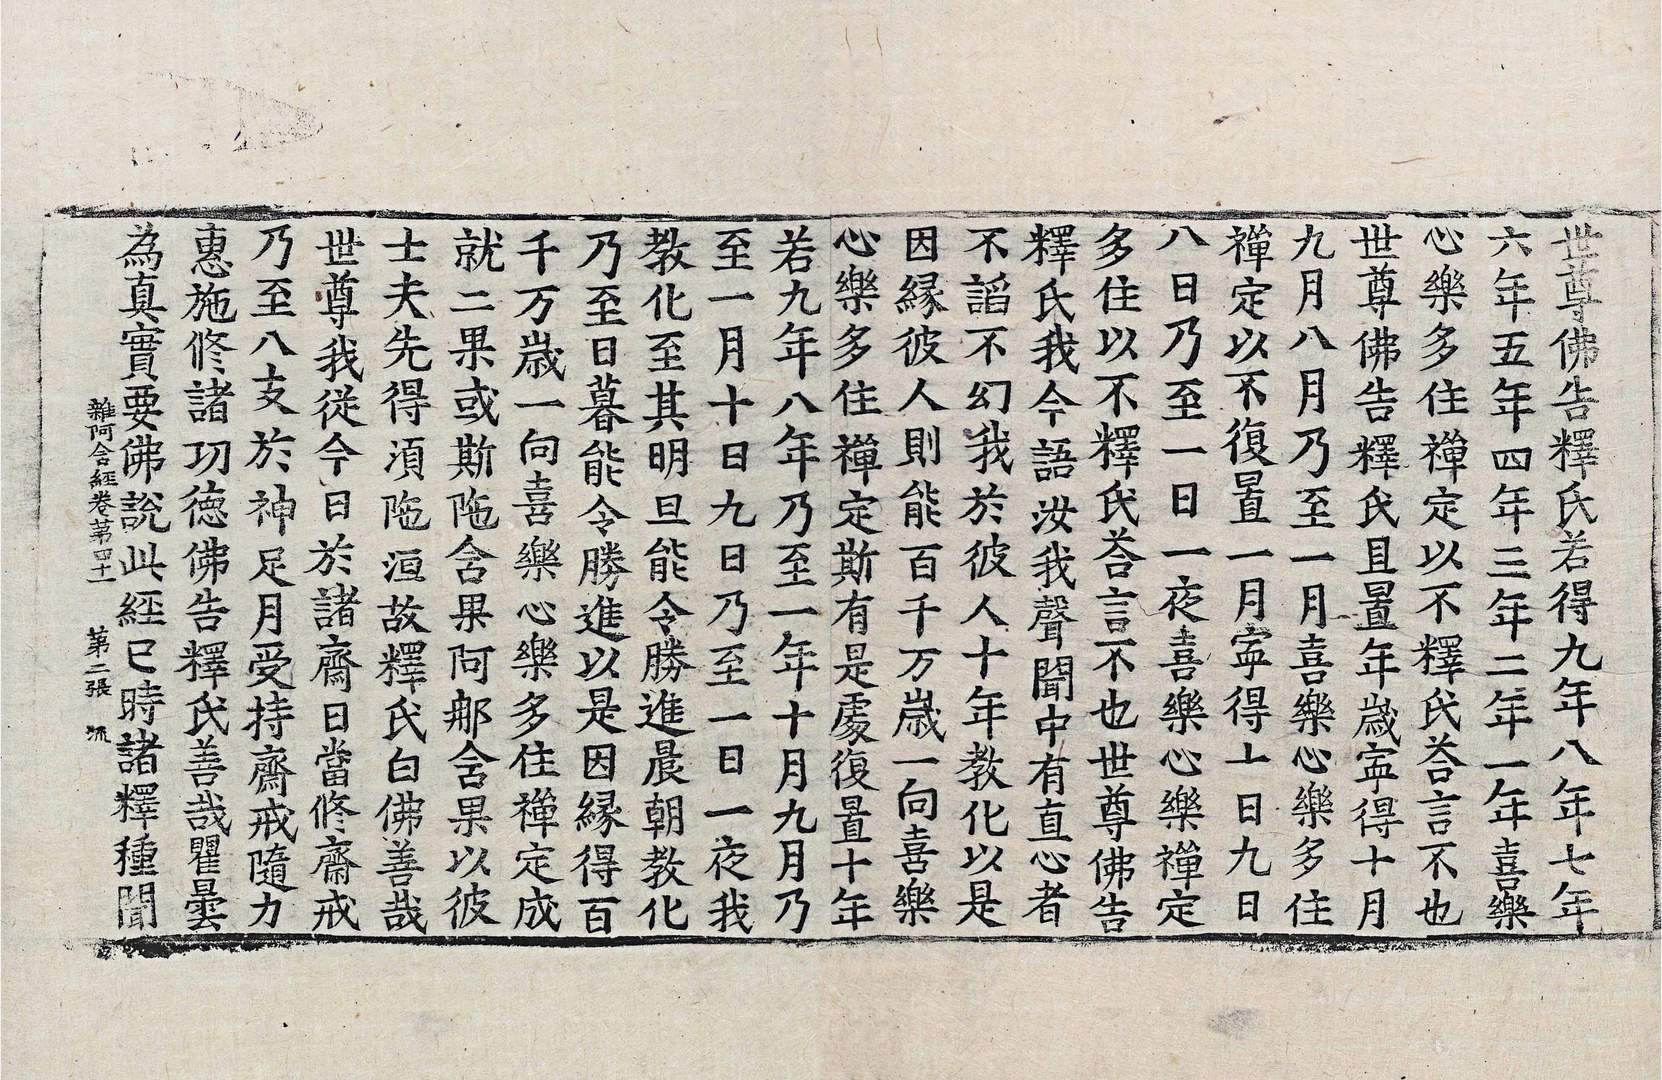 世尊佛告釋氏若得九年八年七年
六年五年四年三年二年一年喜樂
心樂多住禪定以不釋氏荅言不也
世尊佛告釋氏且置年歲寜得十月
九月八月乃至一月喜樂心樂多住
禪定以不復置一月寜得十日九日
八日乃至一日一夜喜樂心樂禪定
多住以不釋氏荅言不也世尊佛告
釋氏我今語汝我聲聞中有直心者
不諂不幻我於彼人十年教化以是
因緣彼人則能百千万歲一向喜樂
心樂多住禪定斯有是處復置十年
若九年八年乃至一年十月九月乃
至一月十日九日乃至一日一夜我
教化至其明旦能令勝進晨朝教化
乃至日暮能令勝進以是因緣得百
千万歲一向喜樂心樂多住禪定成
就二果或斯陁含果阿那含果以彼
士夫先得湏陁洹故釋氏白佛善哉
世尊我從今日於諸齋日當修齋戒
乃至八支於神足月受持齋戒隨力
惠施修諸功德佛告釋氏善哉瞿曇
為真實要佛說此經已時諸釋種聞
雜阿含經卷第四十一 第二張 流